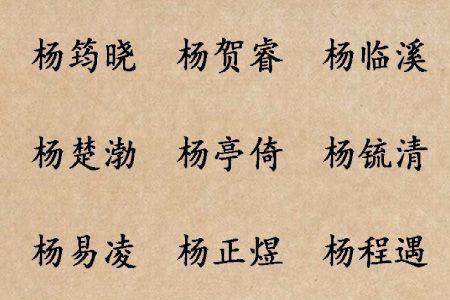 杨筠晓 杨贺睿 杨临溪
杨楚渤 杨亭倚 杨锍清
杨易凌 杨正煜 杨程遇